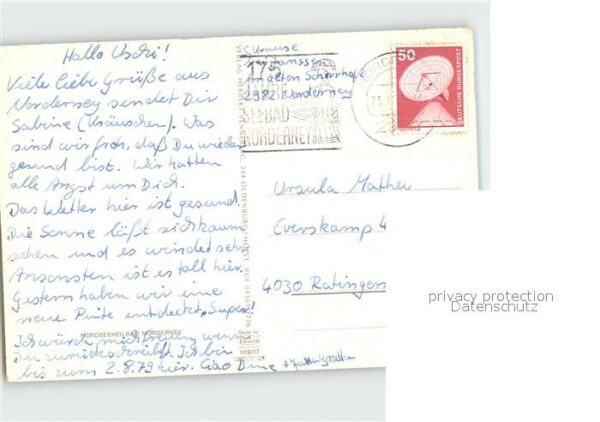 Hallo Uschi!
Viele liebe Grüße aus
Norderney sendet Dir
Sabine (Kräuschen). Was
sind wir froh, daß Du wieder
gesund bist. Wir hatten
alle Angst um Dich.
Das Wetter hier ist gesund.
Die Sonne läßt sich kaum
sehen und es windet sehr.
Ansonsten ist es toll hier.
Gestern haben wir eine
neue Pinte entdeckt, Super!
NORDSEEHEILBAD NORDERNEY
Ich würde mich freuen wenn
Du zurückschreibst. Ich bin
bis zum 2.8.79 hier. Ciao Bine
S. Krause
Janssen
Am alten Schirrhof
2982 Norderney
175
JAHRE
SEEBAD
NORDERNEY
50
DEUTSCHE BUNDESPOST
Ursula
Everskamp 4
4030 Ratingen
1119/17
privacy protection
Datenschutz